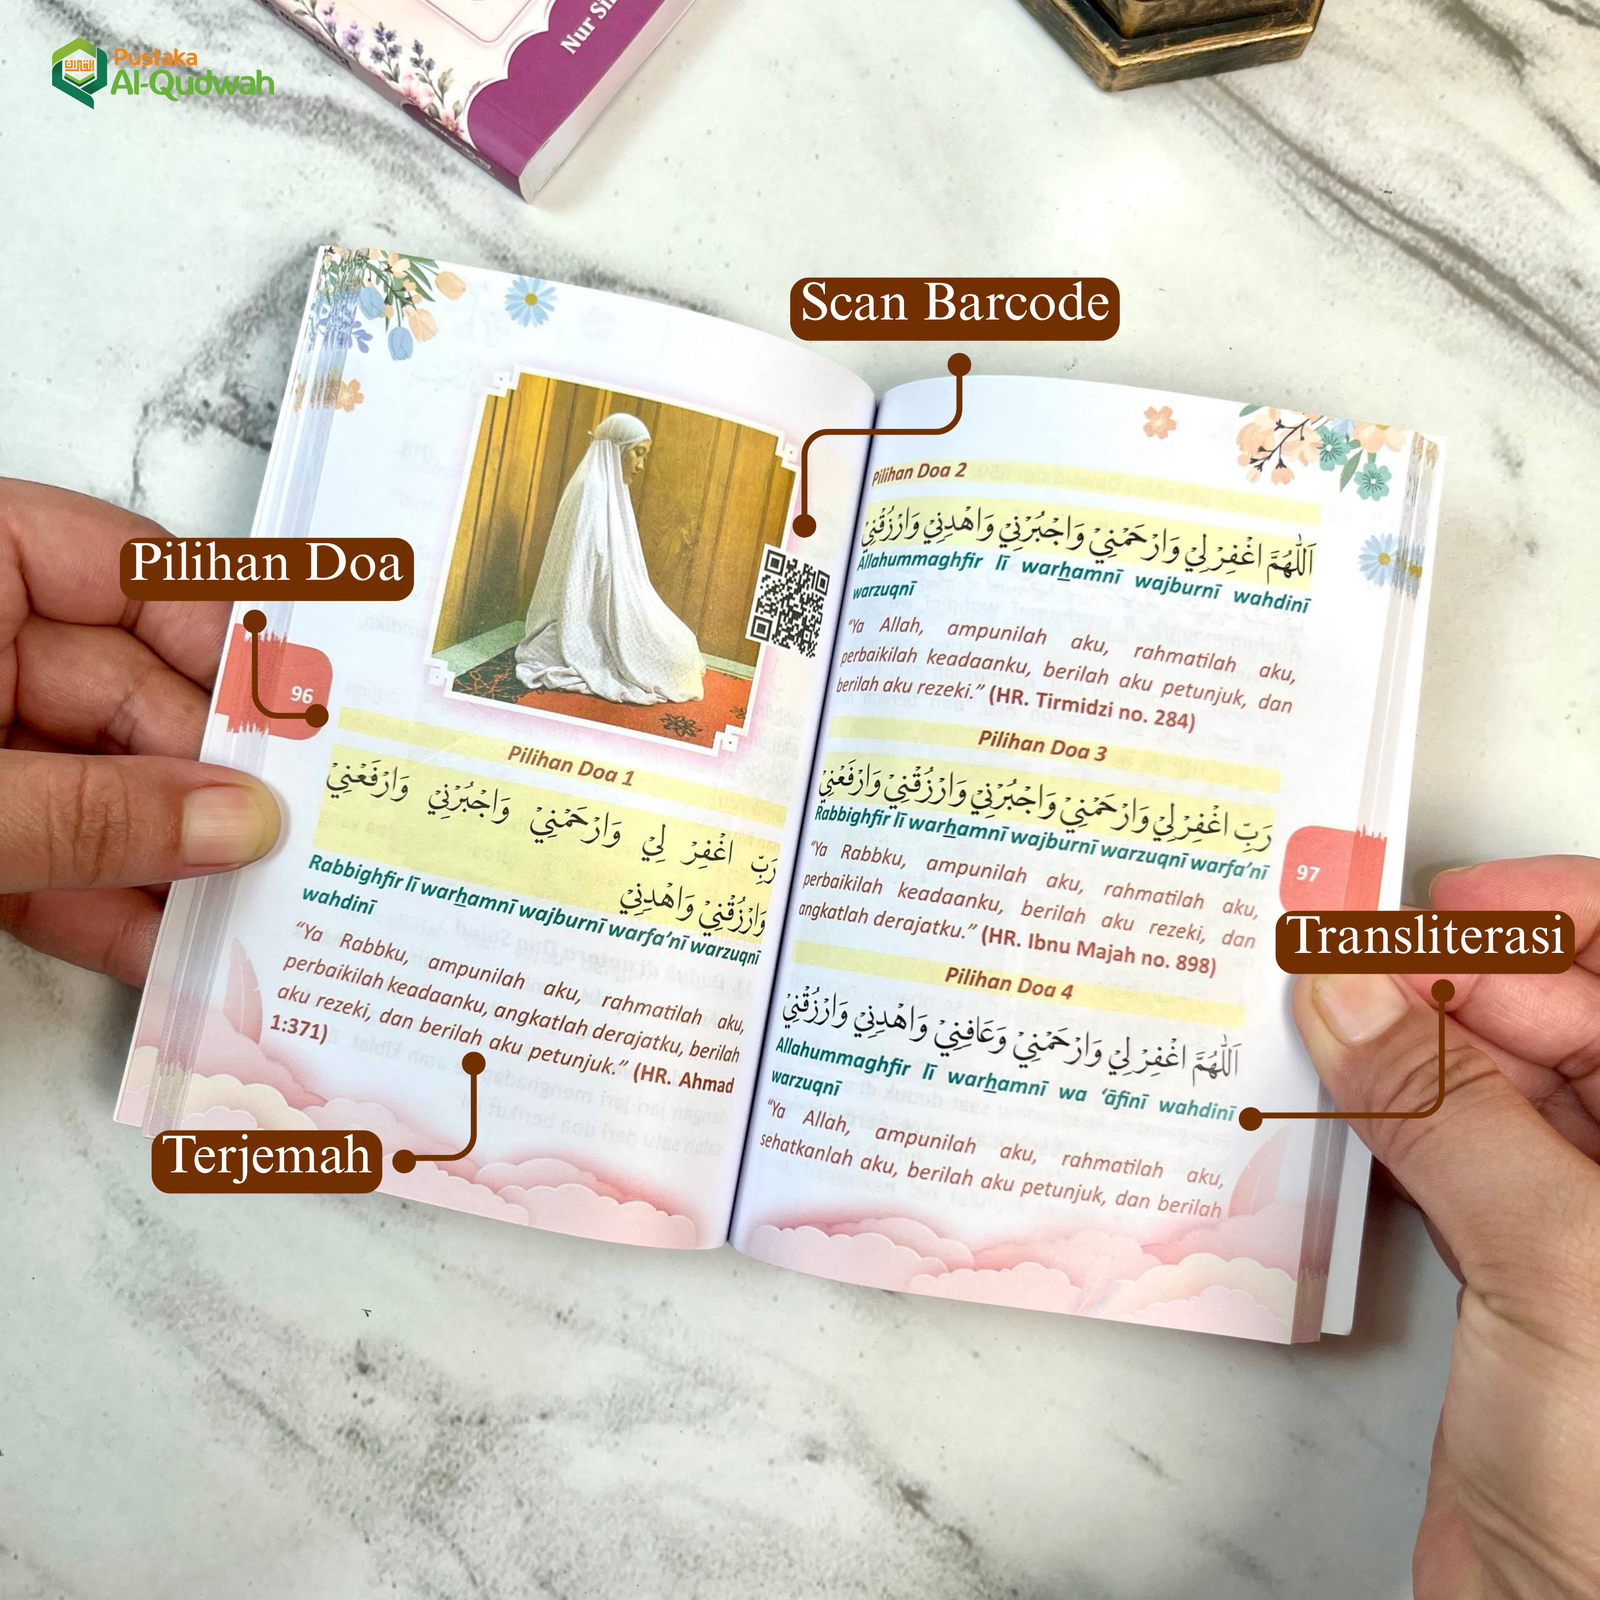 Pustaka
Al-Qudwah
Nur Si
Scan Barcode
Pilihan Doa
Terjemah
Transliterasi
96
Pilihan Doa 1
رَبِّ اغْفِرْ لِي وَارْحَمْنِيْ وَاجْبُرْنِي وَارْفَعْنِيْ
وَارْزُقْنِيْ وَاهْدِنِيْ
Rabbighfir lī warhamnī wajburnī warfa’nī warzuqnī
wahdinī
“Ya Rabbku, ampunilah aku, rahmatilah aku,
perbaikilah keadaanku, angkatlah derajatku, berilah
aku rezeki, dan berilah aku petunjuk.” (HR. Ahmad
1:371)
Pilihan Doa 2
اَللّٰهُمَّ اغْفِرْ لِي وَارْحَمْنِيْ وَاجْبُرْنِي وَاهْدِنِيْ وَارْزُقْنِيْ
Allahummaghfir lī warhamnī wajburnī wahdinī
warzuqnī
“Ya Allah, ampunilah aku, rahmatilah aku,
perbaikilah keadaanku, berilah aku petunjuk, dan
berilah aku rezeki.” (HR. Tirmidzi no. 284)
Pilihan Doa 3
رَبِّ اغْفِرْ لِي وَارْحَمْنِيْ وَاجْبُرْنِي وَارْزُقْنِيْ وَارْفَعْنِيْ
Rabbighfir lī warhamnī wajburnī warzuqnī warfa’nī
“Ya Rabbku, ampunilah aku, rahmatilah aku,
perbaikilah keadaanku, berilah aku rezeki, dan
angkatlah derajatku.” (HR. Ibnu Majah no. 898)
97
Pilihan Doa 4
اَللّٰهُمَّ اغْفِرْ لِي وَارْحَمْنِيْ وَعَافِنِيْ وَاهْدِنِيْ وَارْزُقْنِيْ
Allahummaghfir lī warhamnī wa ‘āfinī wahdinī
warzuqnī
“Ya Allah, ampunilah aku, rahmatilah aku,
sehatkanlah aku, berilah aku petunjuk, dan berilah